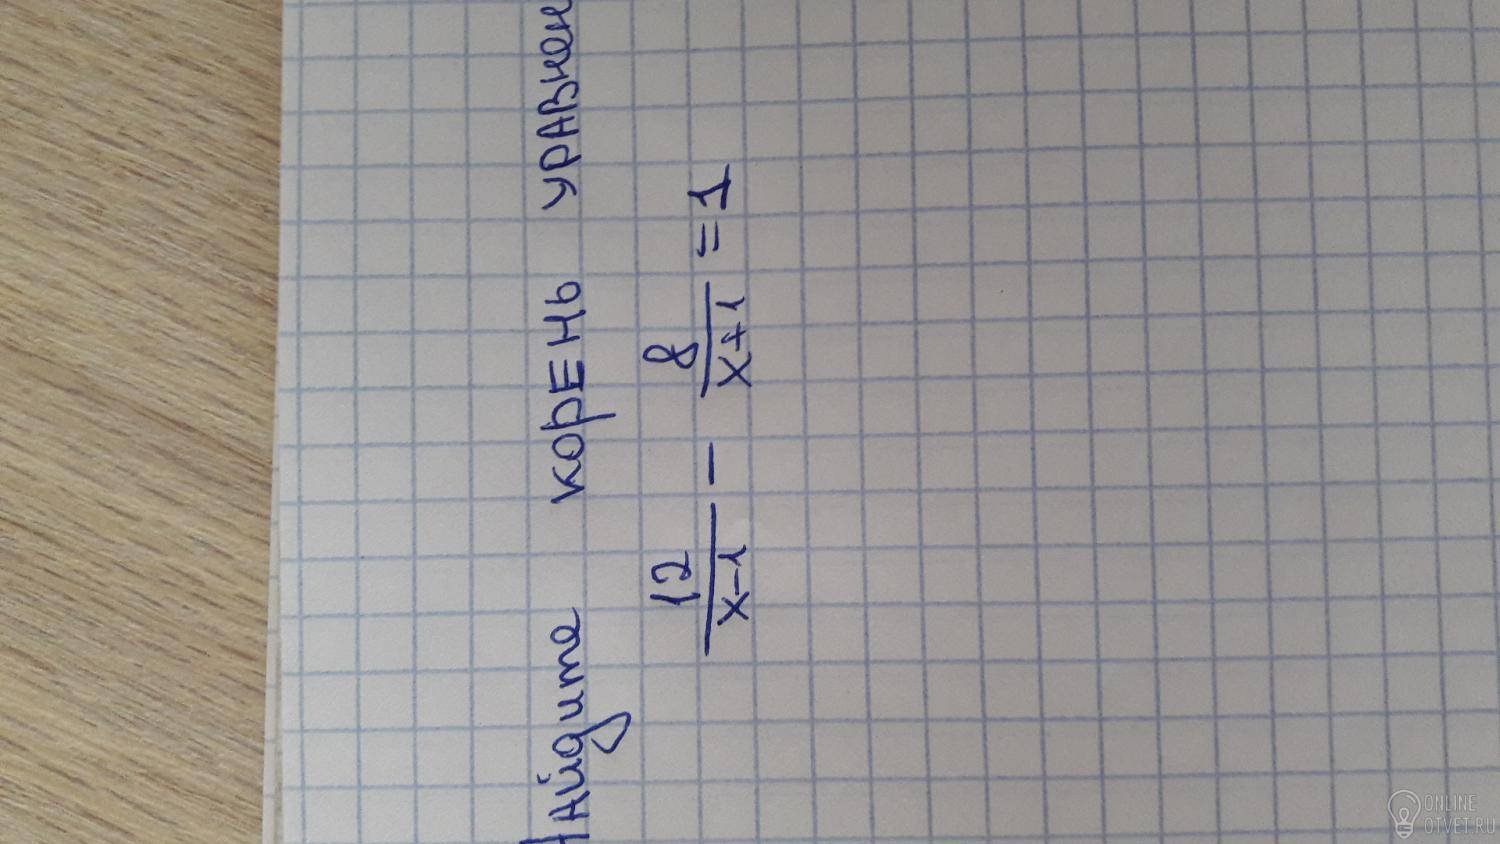 Найдите корень уравнен
12/x-1 - 8/x+1 = 1
ONLINE
OTVET.RU